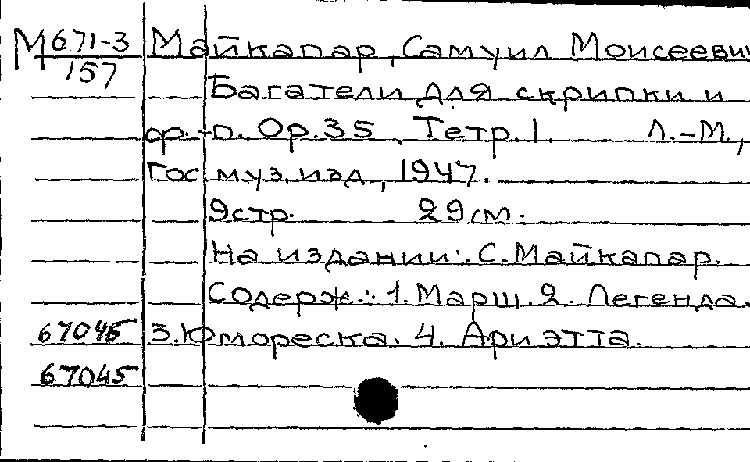 М 671-3 Майкапар, Самуил Моисеевич
157
Багатели для скрипки и
ф.-п. Ор.35. Тетр.1. Л.-М.,
Гос. муз. изд., 1947.
9стр. 29см.
На издании: С. Майкапар.
Содерж.: 1. Марш. 2. Легенда.
67045 3. Юмореска. 4. Ариэтта.
67045